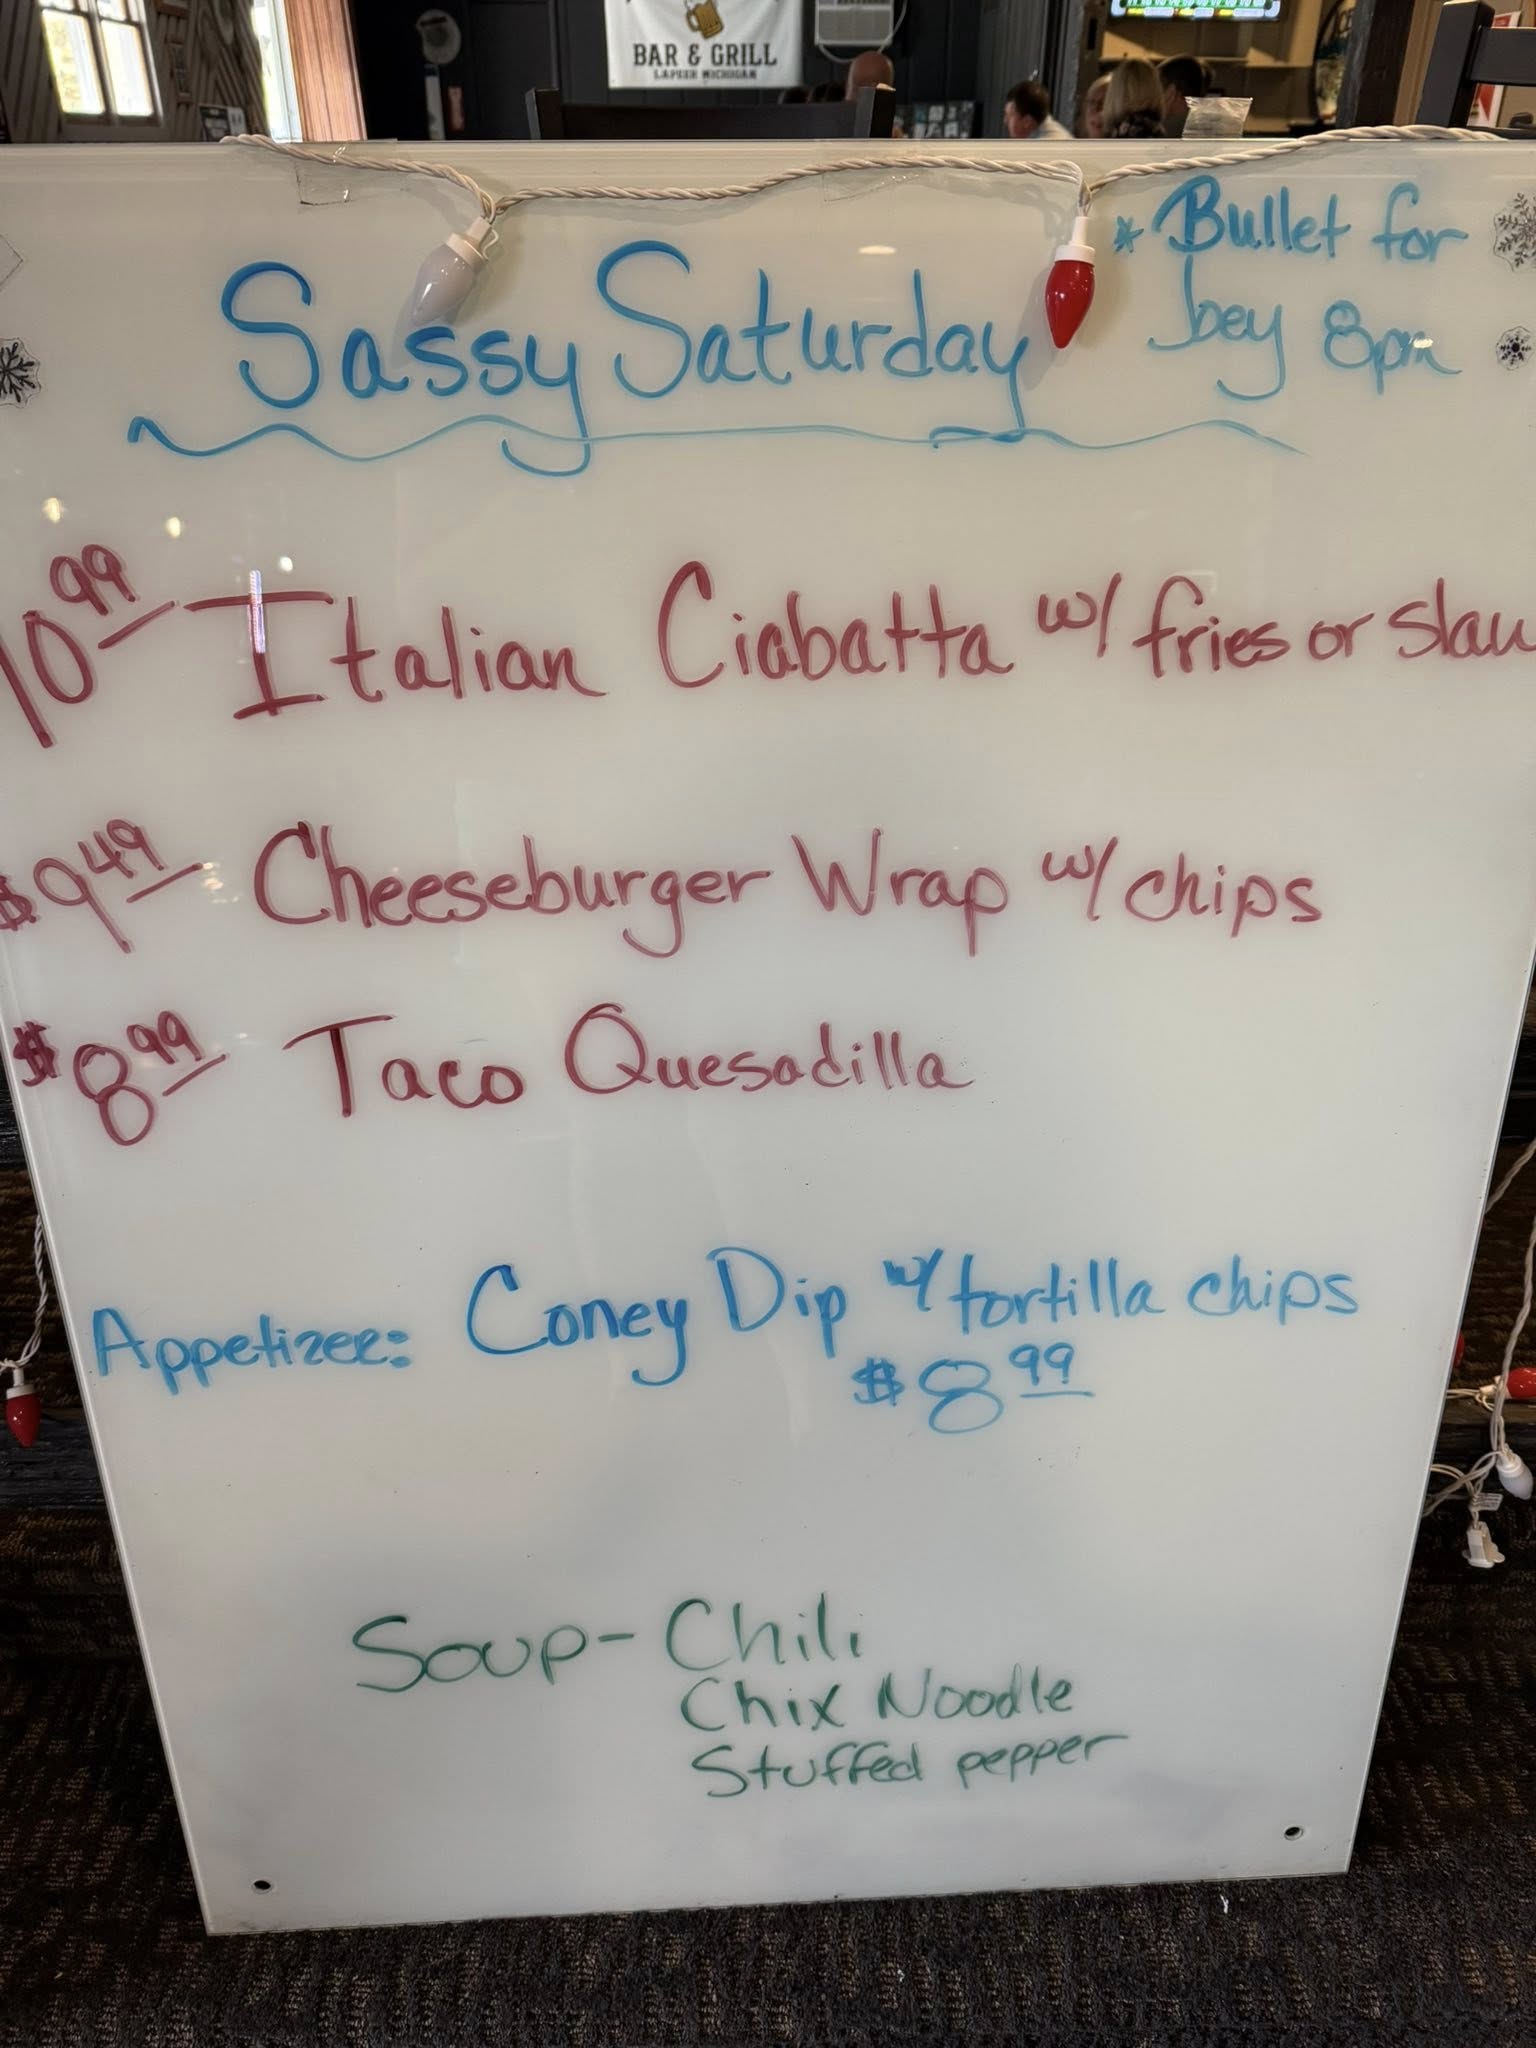 BAR & GRILL
LAPEER MICHIGAN
* Bullet for
Joey 8pm
Sassy Saturday
10.99 Italian Ciabatta w/ fries or slaw
$9.49 Cheeseburger Wrap w/ chips
$8.99 Taco Quesadilla
Appetizer: Coney Dip w/ tortilla chips
$8.99
Soup - Chili
Chix Noodle
Stuffed pepper